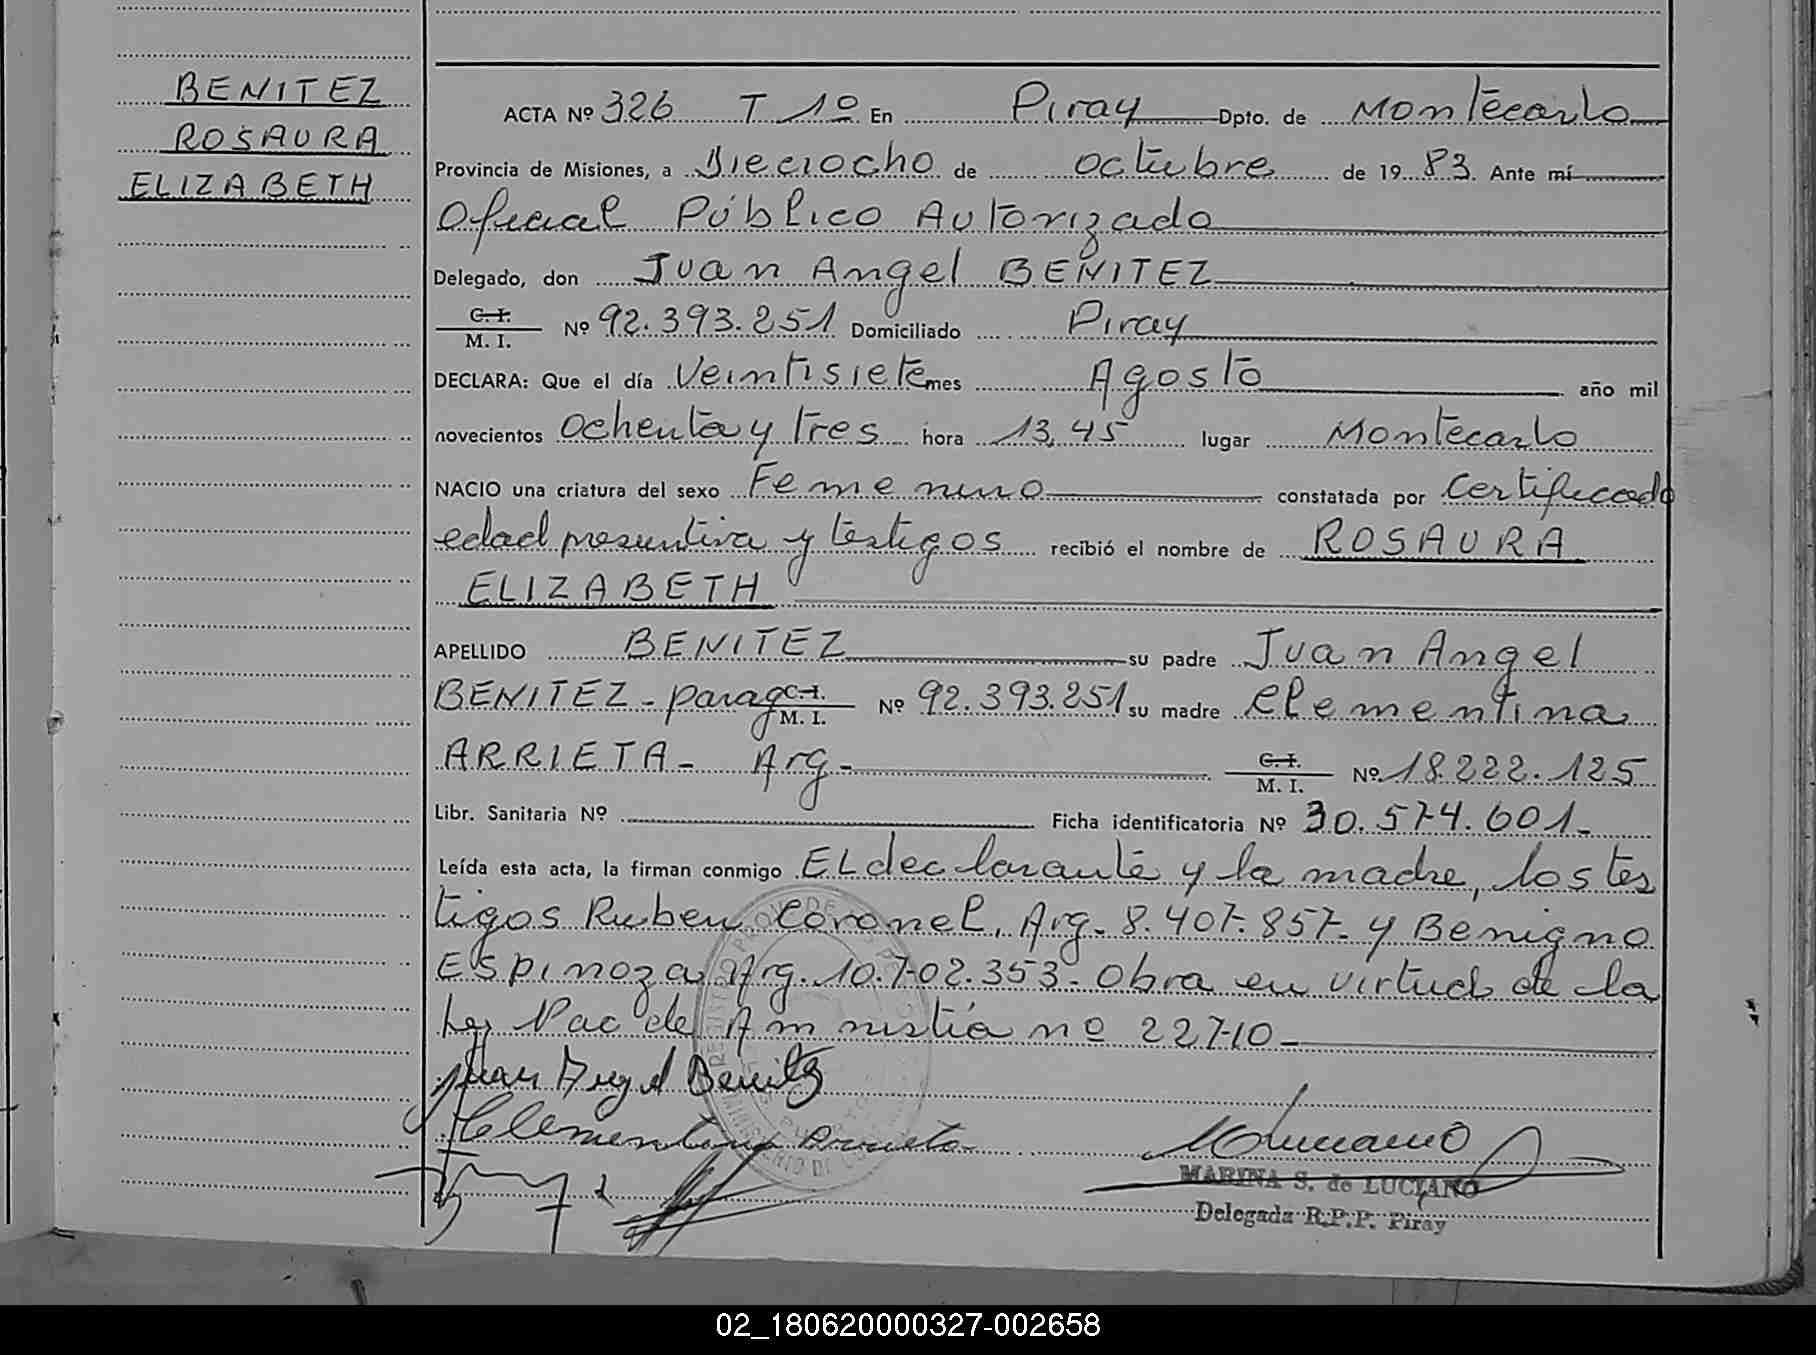 BENITEZ
ROSAURA
ELIZABETH
ACTA Nº 326 T 1º En Piray Dpto. de Montecarlo
Provincia de Misiones, a Dieciocho de octubre de 1983. Ante mí
Oficial Público Autorizado
Delegado, don Juan Angel BENITEZ
C. I.
M. I. Nº 92.393.251 Domiciliado Piray
DECLARA: Que el día Veintisiete mes Agosto año mil
novecientos ochenta y tres hora 13,45 lugar Montecarlo
NACIO una criatura del sexo Femenino constatada por certificado
edad presuntiva y testigos recibió el nombre de ROSAURA
ELIZABETH
APELLIDO BENITEZ su padre Juan Angel
BENITEZ - parag C. I. M. I. Nº 92.393.251 su madre Clementina
ARRIETA - Arg - C. I. M. I. Nº 18.222.125
Libr. Sanitaria Nº Ficha identificatoria Nº 30.574.601.-
Leída esta acta, la firman conmigo El declarante y la madre, los tes
tigos Ruben Coronel, Arg. 8.407.857. y Benigno
Espinoza Arg. 10.702.353. Obra en virtud de la
Ley Nac de Amnistía nº 22710.-
Juan Angel Benitez
Clementina Arrieta
MARINA S. de LUCIANO
Delegada R.P.P. Piray
02_180620000327-002658